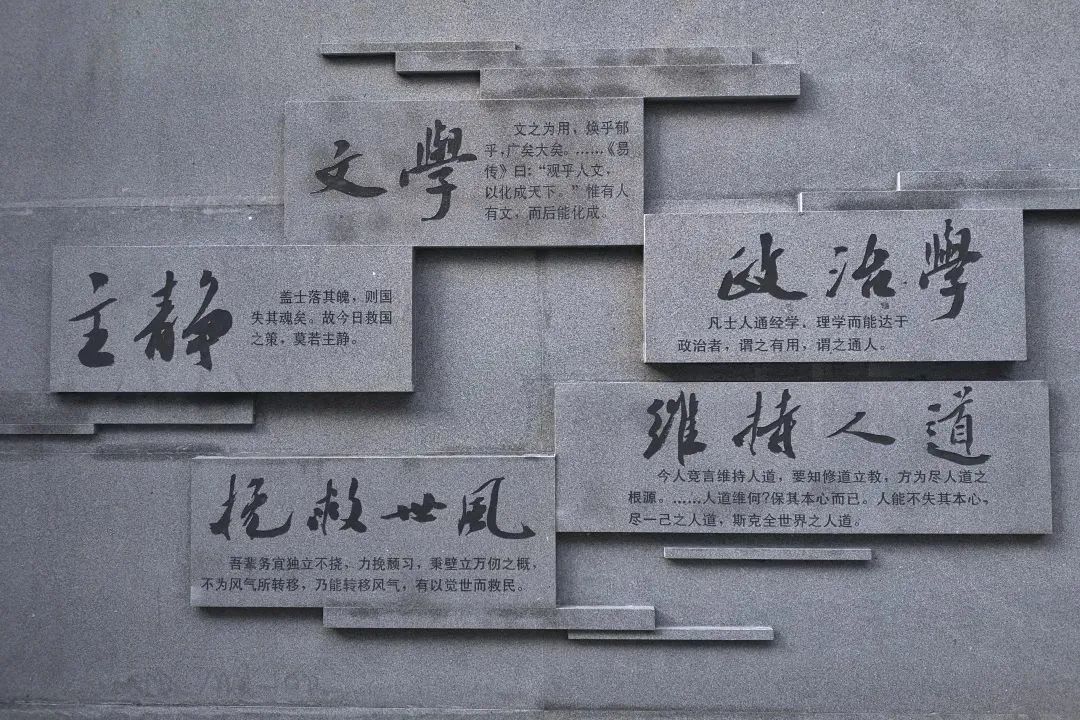 文學
文之为用，焕乎郁
乎，广矣大矣。……《易
传》曰：“观乎人文，
以化成天下。”惟有人
有文，而后能化成。
主静
盖士落其魄，则国
失其魂矣。故今日救国
之策，莫若主静。
政治學
凡士人通经学、理学而能达于
政治者，谓之有用，谓之通人。
維持人道
今人竞言维持人道，要知修道立教，方为尽人道之
根源。……人道维何？保其本心而已。人能不失其本心，
尽一己之人道，斯克全世界之人道。
挽救世風
吾辈务宜独立不挠，力挽颓习，秉壁立万仞之概，
不为风气所转移，乃能转移风气，有以觉世而救民。